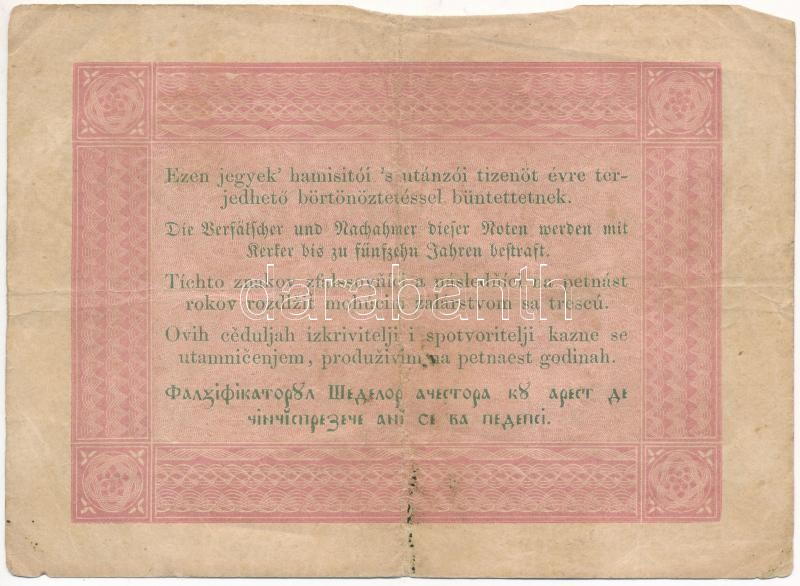 Ezen jegyek' hamisitói 's utánzói tizenöt évre ter-
jedhető börtönöztetéssel büntettetnek.
Die Verfälscher und Nachahmer dieser Noten werden mit
Kerker bis zu fünfzehn Jahren bestraft.
Tíchto znakov zfalssovňíci a následňíci na petnást
darabanth
rokov rozďížiť mohúcim žalárstvom sa trescú.
Ovih ceduljah izkrivitelji i spotvoritelji kazne se
utamničenjem, produživim na petnaest godinah.
Фалꙁіфікаторꙋл Шеделор ачестора кꙋ арест де
чінчіспреꙁече ані се ва педепсі.